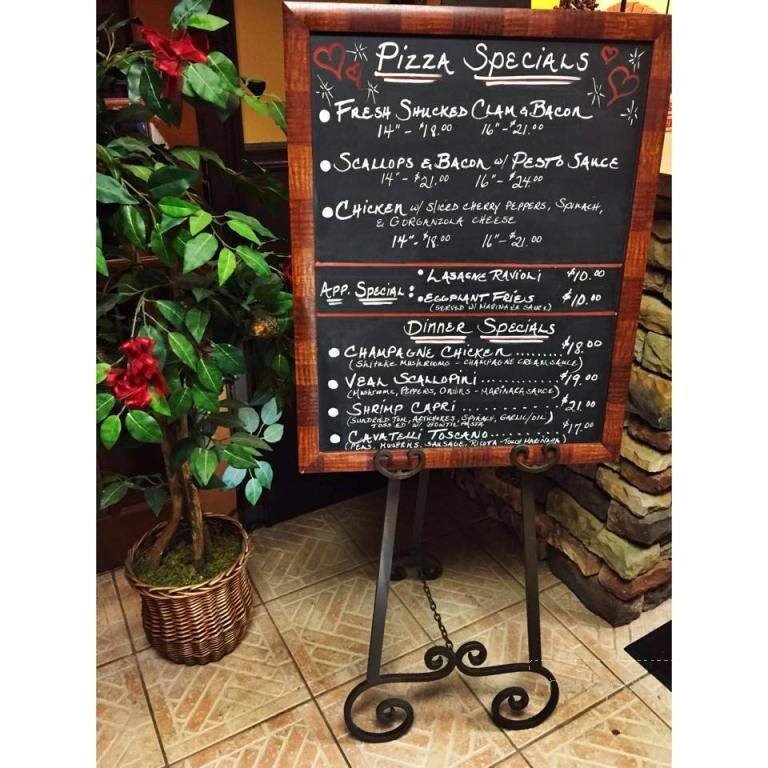 Pizza Specials
Fresh Shucked Clam & Bacon
14" - $18.00 16" - $21.00
Scallops & Bacon w/ Pesto Sauce
14" - $21.00 16" - $24.00
Chicken w/ Sliced Cherry Peppers, Spinach,
& Gorganzola Cheese
14" - $18.00 16" - $21.00
App. Special: • Lasagne Ravioli $10.00
• Eggplant Fries $10.00
(Served w/ Marinara Sauce)
Dinner Specials
Champagne Chicken ........ $18.00
(Shitake Mushrooms - Champagne Cream Sauce)
Veal Scallopini ........... $19.00
(Mushrooms, Peppers, Onions - Marinara Sauce)
Shrimp Capri ............. $21.00
(Sundried Tom, Artichokes, Spinach, Garlic/Oil)
Tossed w/ Bowtie Pasta
Cavatelli Toscano .......... $17.00
(Peas, Mushrms, Sausage, Ricota - Touch Marinara)